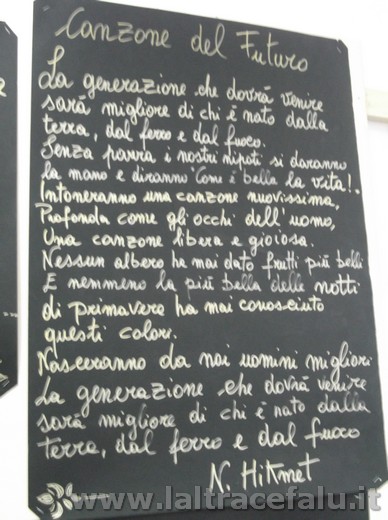 Canzone del Futuro
La generazione che dovrà venire
sarà migliore di chi è nato dalla
terra, dal ferro e dal fuoco.
Senza paura i nostri nipoti si daranno
la mano e diranno "Com'è bella la vita!.
Intoneranno una canzone nuovissima,
Profonda come gli occhi dell'uomo,
Una canzone libera e gioiosa.
Nessun albero ha mai dato frutti più belli
E nemmeno la più bella delle notti
di primavera ha mai conosciuto
questi colori.
Nasceranno da noi uomini migliori
La generazione che dovrà venire
sarà migliore di chi è nato dalla
terra, dal ferro e dal fuoco
N. Hikmet
www.laltracefalu.it